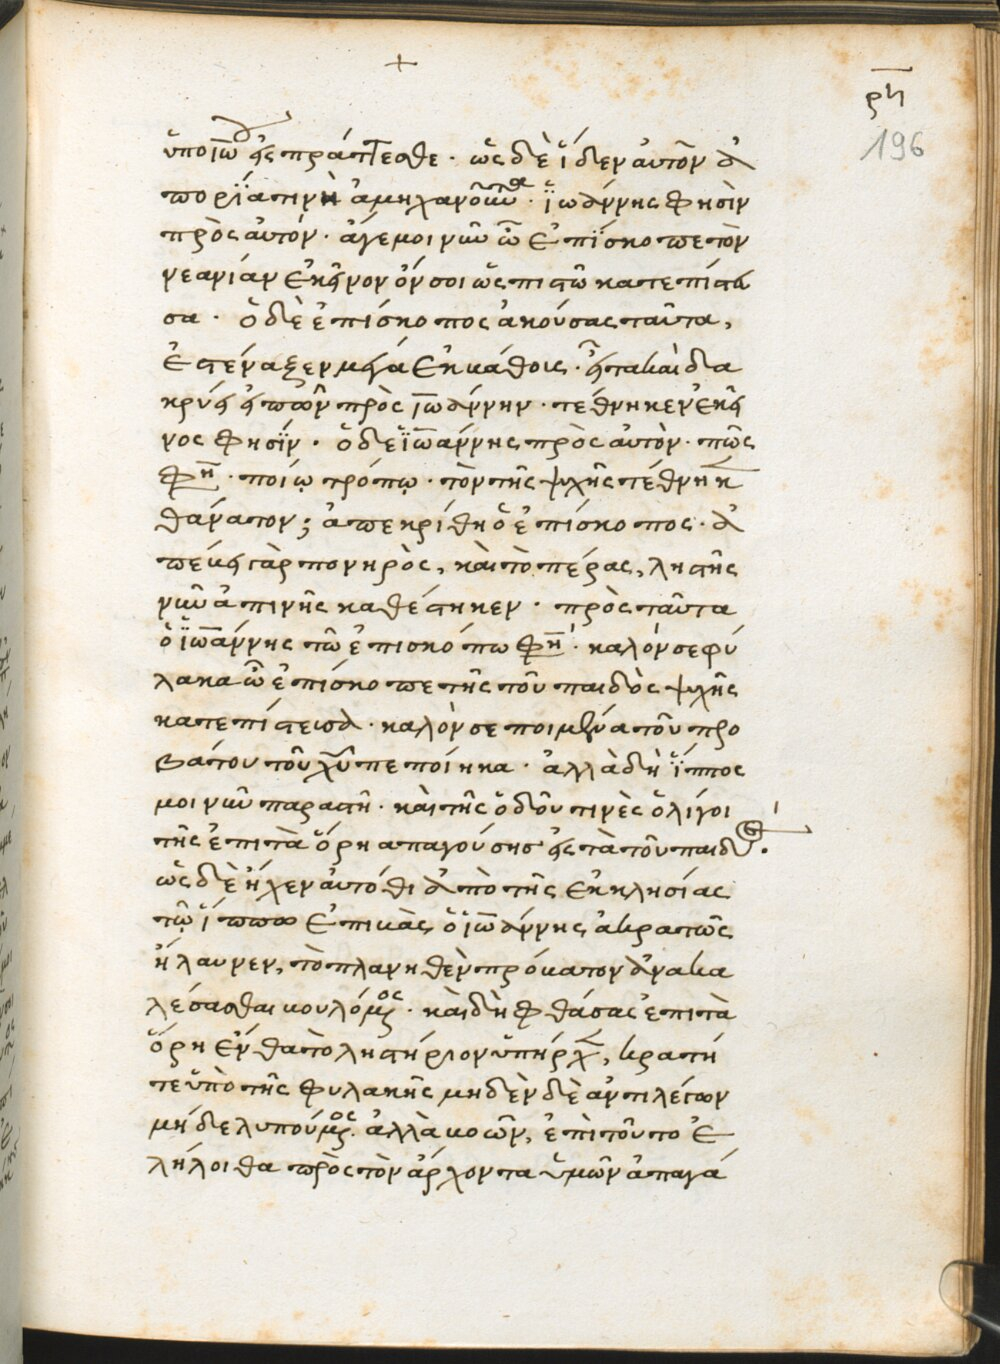 +
ρη
196
ὕποϊω εἰσπράττεσθε· ὡς δὲ ἴδεν αὐτὸν ἀ
πορία τινὶ ἀμηχανοῦντα· ἰωάννης φησὶν
πρὸς αὐτόν· ἄγε μοι νῦν ὦ ἐπίσκοπε τὸν
νεανίαν ἐκεῖνον ὅν σοι ὡς πιστῶ κατεπίστευ
σα· ὁ δὲ ἐπίσκοπος ἀκούσας ταῦτα,
ἐστέναξεν μέγα ἐκ βάθους· εἶτα καὶ δα
κρύσ εἰπὼν πρὸς ἰωάννην· τέθνηκεν ἐκεῖ
νος φησίν· ὁ δὲ ἰωάννης πρὸς αὐτὸν· πῶς
φη· ποίω τρόπω· τὸν τῆς ψχῆς τέθνηκ
θάνατον; ἀπεκρίθη ὁ ἐπίσκοπος· ἀ
πέβη γὰρ πονηρὸς, καὶ τὸ πέρας, ληστὴς
νῦν ἀπινὴς καθέστηκεν· πρὸς ταῦτα
ὁ ἰωάννης τῶ ἐπισκόπω φη· καλόν σε φύ
λακα ὦ ἐπίσκοπε τῆς τοῦ παιδὸς ψχῆς
κατεπίστευσα· καλὸν σε ποιμένα τοῦ προ
βάτου τοῦ χῦ πεποίηκα· ἀλλὰ δὴ ἵππος
μοι νῦν παραστῆ· καὶ τῆς ὁδοῦ τινὲς ὀλίγοι
τῆς ἐπὶ τὰ ὄρη ἀπαγούσης εἰς τὰ τοῦ παιδὸς.
ὡς δὲ ἦχεν αὐτόθι ἀπὸ τῆς ἐκκλησίας
τῶ ἵππω ἐπιβὰς ὁ ἰωάννης ἀκρατῶς
ἤλαυνεν, τὸ πλανηθὲν πρόβατον ἀνακα
λέσασθαι βουλόμενος· καὶ δὴ φθάσας ἐπὶ τὰ
ὄρη ἔνθα τὸ ληστήριον ὑπῆρχ, κρατή
τε ὑπὸ τῆς φυλακῆς μηδὲν δὲ ἀντιλέγων
μήδε λυπούμενος. ἀλλὰ βοῶν, ἐπὶ τοῦτο ἐ
λήλοιθα πρὸς τὸν ἄρχοντα ὑμῶν ἀπαγά